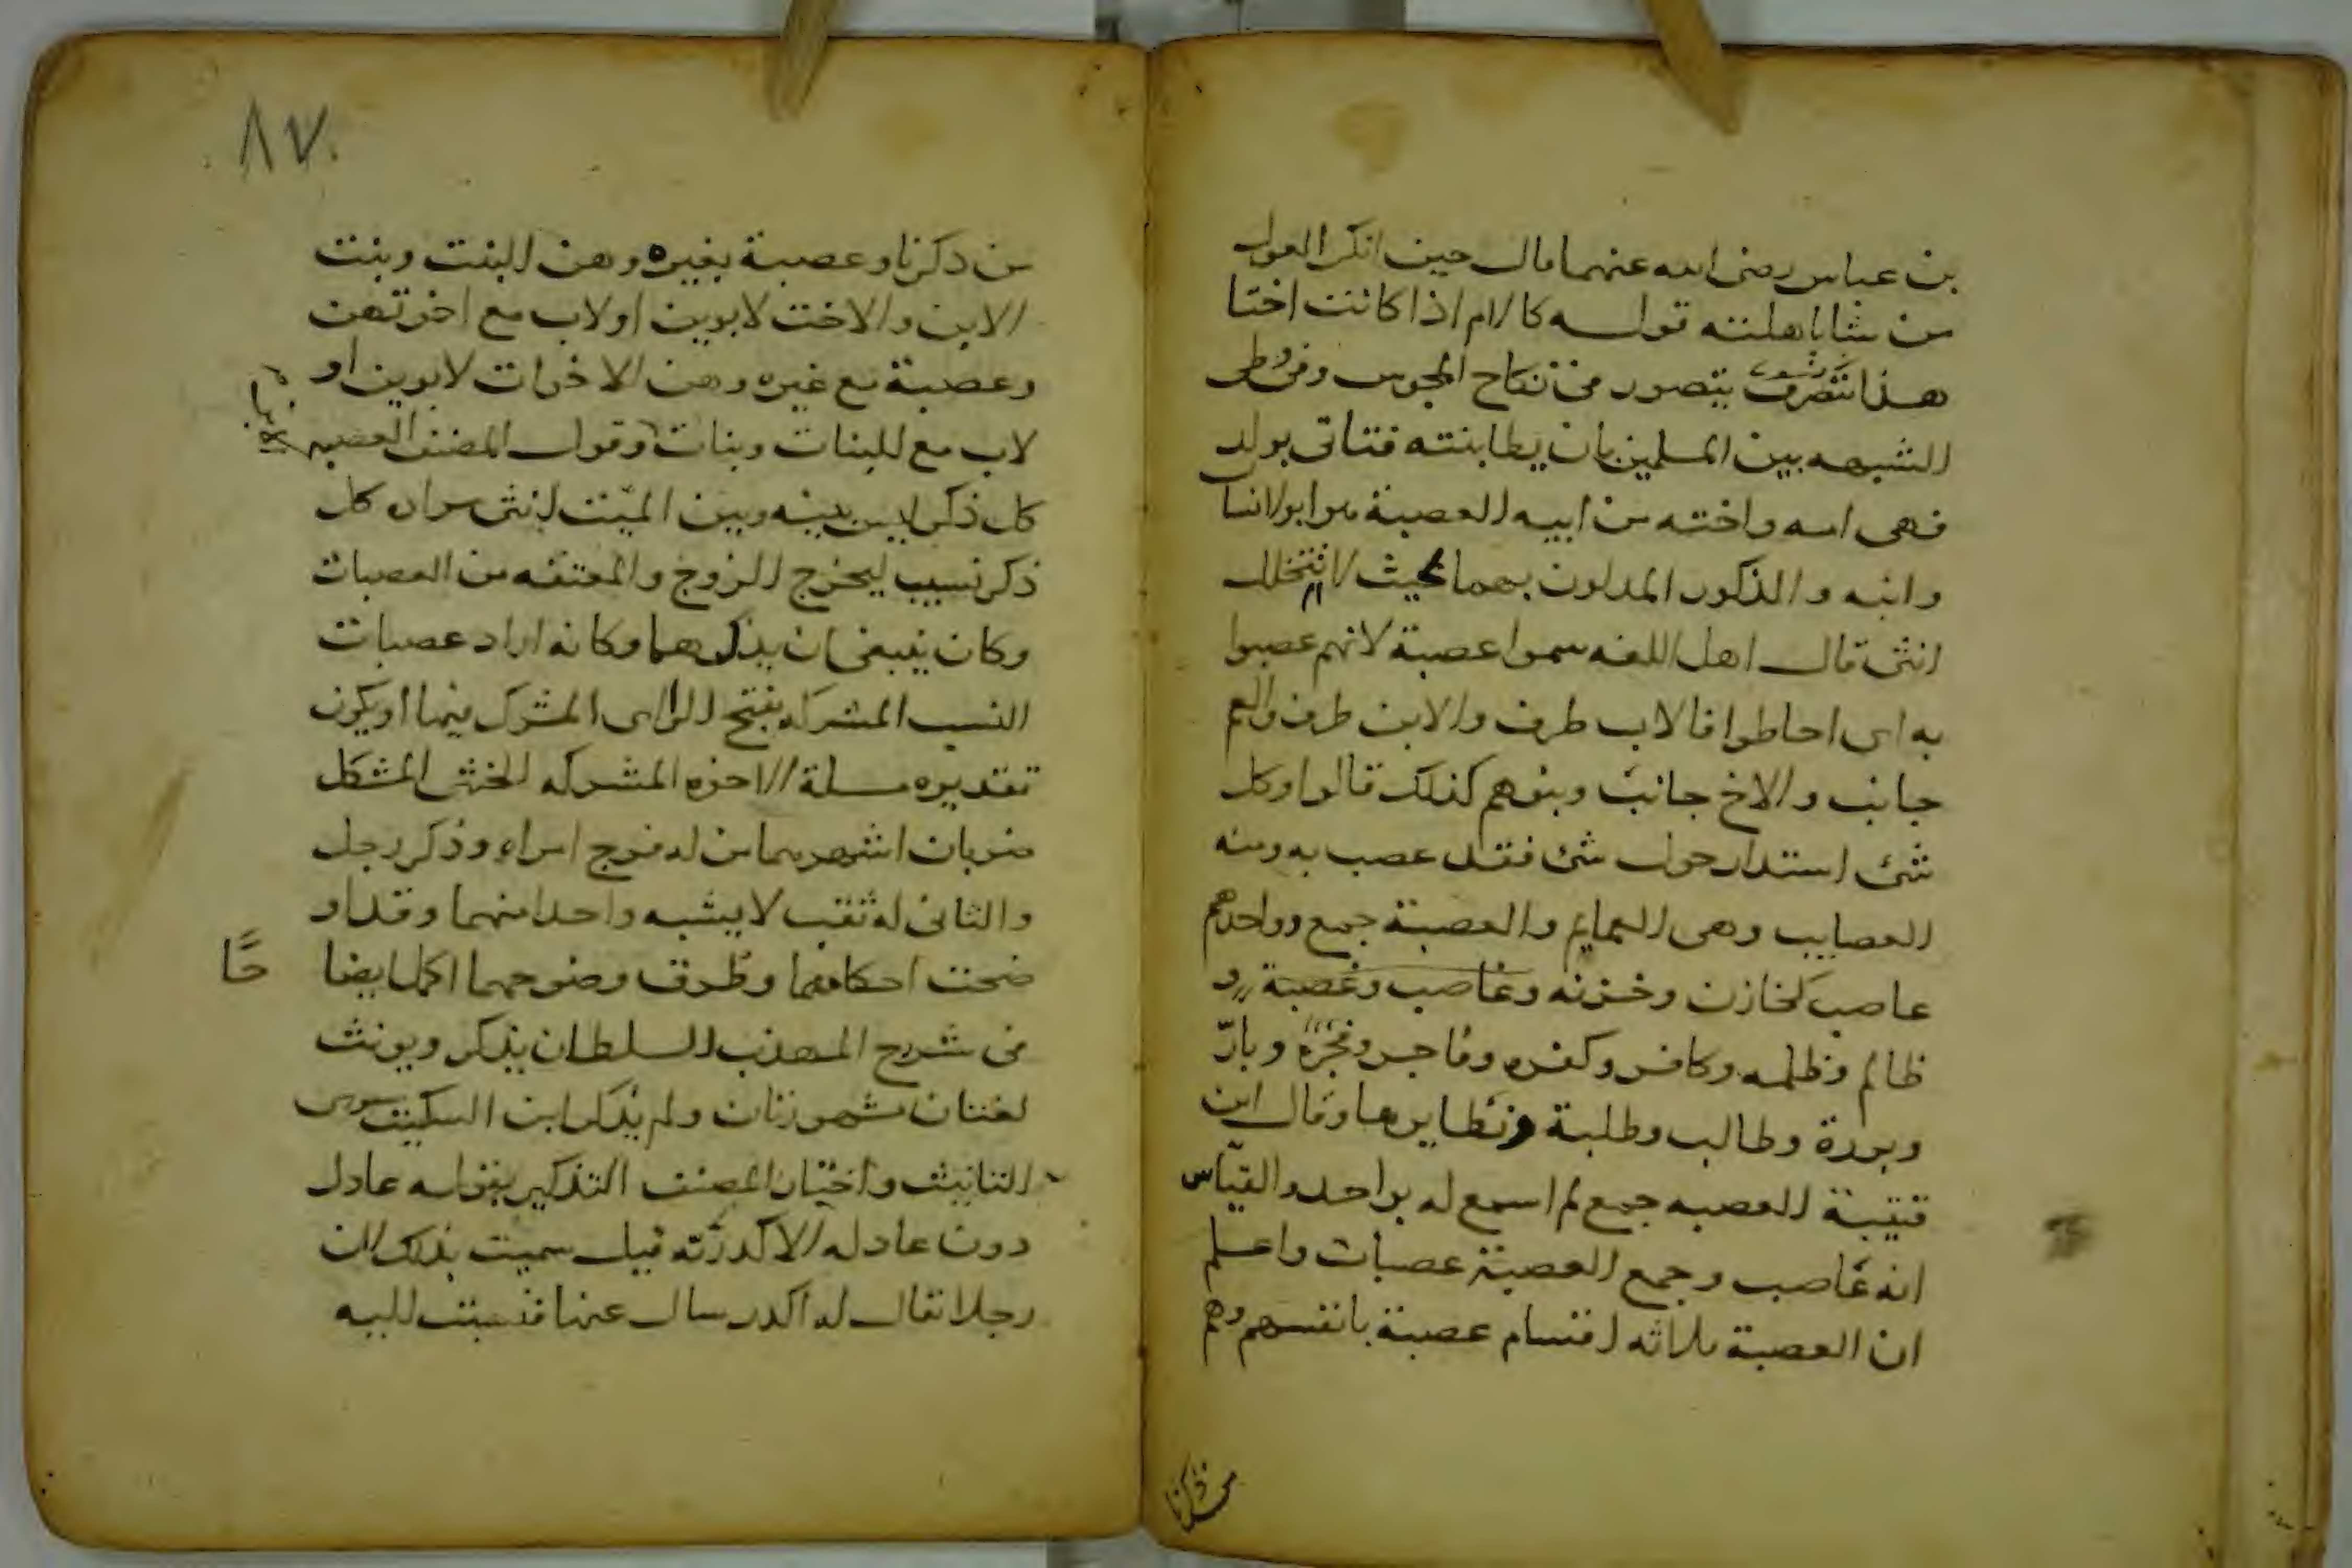 بن عباس رضى الله عنهما قال حين انكر العول
من شا باهلته قوله كالام اذا كانت اختا
هذا يتصور فى نكاح المجوس وفى وطى
الشبهه بين المسلمين بان يطا بنته فتاتى بولد
فهى امه واخته من ابيه العصبة هو ابو الانسان
وابنه والذكور المدلون بهما بحيث لا يتخلل
انثى قال اهل اللغه سموا عصبة لانهم عصبوا
به اى احاطوا فالاب طرف والابن طرف والعم
جانب والاخ جانب وبنوهم كذلك قالوا وكل
شئ استدار حول شئ فقد عصب به ومنه
العصايب وهى العمايم والعصبة جمع وواحدهم
عاصب كخازن وخزنه وغاصب وغصبة و
ظالم وظلمه وكافر وكفره وفاجر وفجرة وبارّ
وبررة وطالب وطلبة ونظايرها وقال ابن
قتيبة العصبه جمع لم اسمع له بواحد والقياس
انه عاصب وجمع العصبة عصبات واعلم
ان العصبة ثلاثه اقسام عصبة بانفسهم وهم
من ذكرنا
٨٧
من ذكرنا وعصبة بغيره وهن البنت وبنت
الابن والاخت لابوين او لاب مع اخوتهن
وعصبة مع غيره وهن الاخوات لابوين او
لاب مع البنات وبنات وقول المصنف العصبه
كل ذكر ليس بينه وبين الميّت انثى مراده كل
ذكر نسيب ليخرج الزوج والمعتقه من العصبات
وكان ينبغى ان يذكرهما وكانه اراد عصبات
النسب المشركه بفتح الراى المشرك فيها او يكون
تقديره مسلة الاخوه المشركه الخنثى المشكل
ضربان اشهرهما من له فرج امراه وذكر رجل
والثانى له ثقب لا يشبه واحدا منهما وقد او
ضحت احكامهما وطرق وضوحهما اكمل ايضا
حًا
فى شرح المهذب السلطان يذكر ويونث
لغتان مشهورتان ولم يذكر ابن السكيت سوى
التانيث واختيار المصنف التذكير بقوله عادل
دون عادله الاكدريّه قيل سميت بذلك لان
رجلا يقال له اكدر سال عنها فنسبت اليه